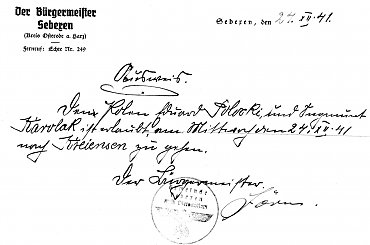 Der Bürgermeister
Sebexen
(Kreis Osterode a. Harz)
Fernruf: Echte Nr. 249
Sebexen, den 24. XII. 41.
Ausweis.
Dem Polen Eduard und Sigmunt
Karolak ist erlaubt, am Mittwoch den 24. XII. 41
nach Kreiensen zu gehen.
Der Bürgermeister.